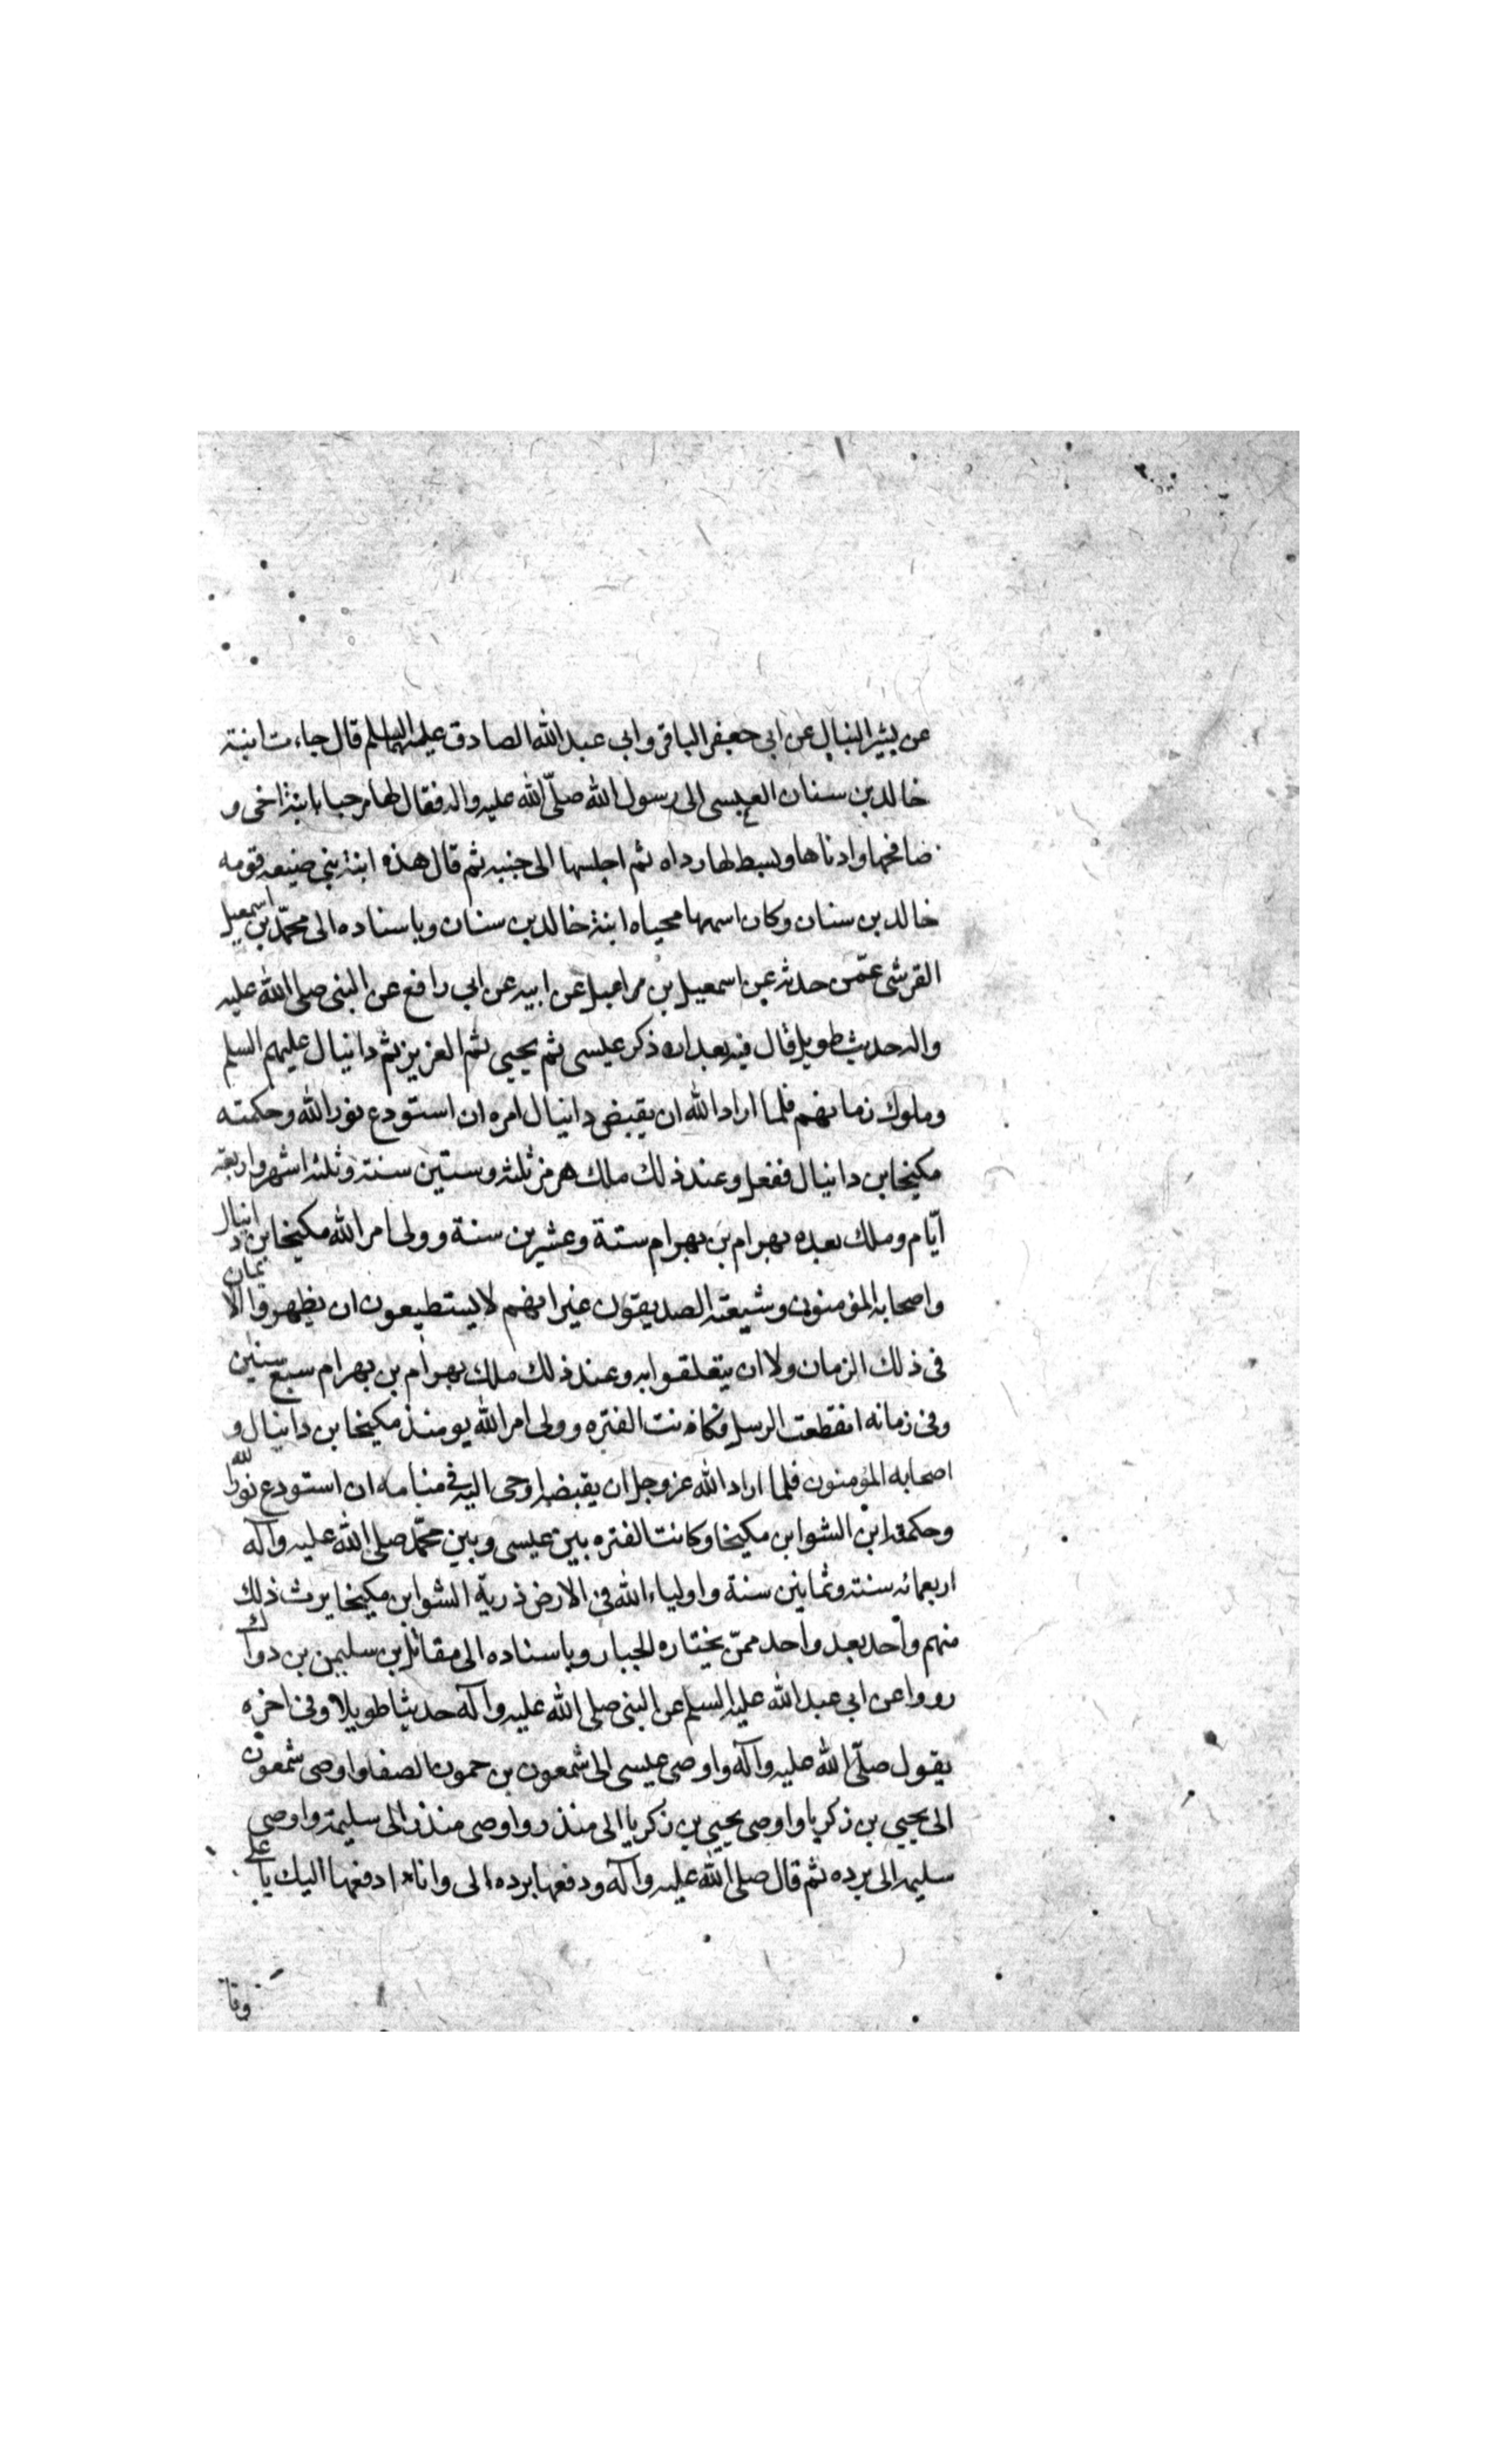 عن بشير النبال عن ابي جعفر الباقر وابي عبد الله الصادق عليهما السلم قال جاءت ابنة
خالد بن سنان العبسى الى رسول الله صلّى الله عليه واله فقال لها مرحبا يا ابنة اخى و
صافحها وادناها وبسط لها رداه ثم اجلسها الى جنبه ثم قال هذه ابنة نبي ضيعه قومه
خالد بن سنان وكان اسمها محياه ابنة خالد بن سنان وباسناده الى محمّد بن اسمعيل
القرشى عمّن حدثه عن اسمعيل بن عن ابيه عن ابي رافع عن النبى صلى الله عليه
واله حديث طويل قال فيه بعد ان ذكر عيسى ثم يحيى ثم العزيز ثم دانيال عليهم السلم
وملوك زمانهم فلما اراد الله ان يقبض دانيال امره ان استودع نور الله وحكمته
مكيخا بن دانيال ففعل وعند ذلك ملك هرمز ثلثه وستين سنة وثلثه اشهر واربعة
ايّام وملك بعده بهرام بن بهرام ستة وعشرين سنة وولى امر الله مكيخا بن دانيال
واصحابه المؤمنون وشيعته الصديقون غير انهم لا يستطيعون ان يظهروا الايمان
فى ذلك الزمان ولا ان يتعلقوا به وعند ذلك ملك بهرام بن بهرام سبع سنين
وفى زمانه انقطعت الرسل فكانت الفتره وولى امر الله يومئذ مكيخا بن دانيال و
اصحابه المؤمنون فلما اراد الله عز وجل ان يقبضه اوحى اليه في منامه ان استودع نور الله
وحكمته ابن انشوا بن مكيخا وكانت الفتره بين عيسى وبين محمّد صلى الله عليه وآله
اربعمائه سنة وثمانين سنة واولياء الله فى الارض ذرية انشوا بن مكيخا يرث ذلك
منهم واحد بعد واحد ممّن يختاره الجبار وباسناده الى مقاتل بن سليمن بن دوال
رووا عن ابي عبد الله عليه السلم عن النبى صلى الله عليه وآله حديثا طويلا وفى اخره
يقول صلّى الله عليه وآله واوصى عيسى الى شمعون بن حمون الصفا واوصى شمعون
الى يحيى بن زكريا واوصى يحيى بن زكريا الى منذر واوصى منذر الى سليمة واوصى
سليمه الى برده ثم قال صلى الله عليه وآله ودفعها برده الى وانا ادفعها اليك يا على